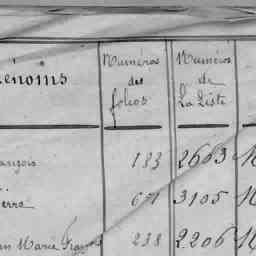 énoms Numéros des folios Numéros de La Liste
ançois 133 2663 M
erre 671 3105 M
an Marie Franç 238 2206 M